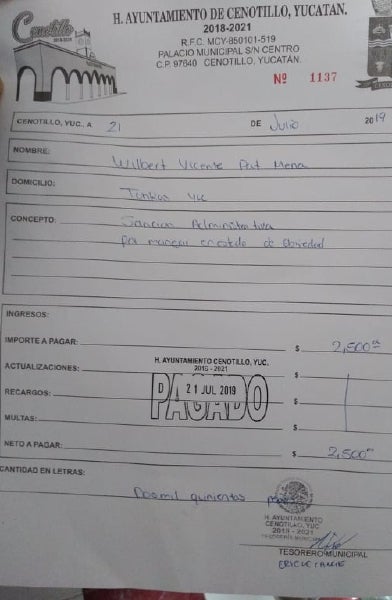 Cenotillo
2018-2021
H. AYUNTAMIENTO DE CENOTILLO, YUCATAN.
2018-2021
R.F.C. MCY-850101-519
PALACIO MUNICIPAL S/N CENTRO
C.P. 97640 CENOTILLO, YUCATAN.
Nº 1137
CENOTILLO, YUC. A 21 DE Julio 2019
NOMBRE: Wilbert Vicente Pat Mena
DOMICILIO: Tunkas Yuc
CONCEPTO: Sancion Administrativa
por manejar en estado de Ebriedad
INGRESOS:
IMPORTE A PAGAR: $ 2,500.00
ACTUALIZACIONES: $
H. AYUNTAMIENTO CENOTILLO, YUC.
2018 - 2021
21 JUL 2019
PAGADO
RECARGOS: $
MULTAS: $
NETO A PAGAR: $ 2,500.00
CANTIDAD EN LETRAS:
Dos mil quinientos pesos
H. AYUNTAMIENTO
CENOTILLO, YUC.
2018 - 2021
TESORERÍA MUNICIPAL
TESORERO MUNICIPAL